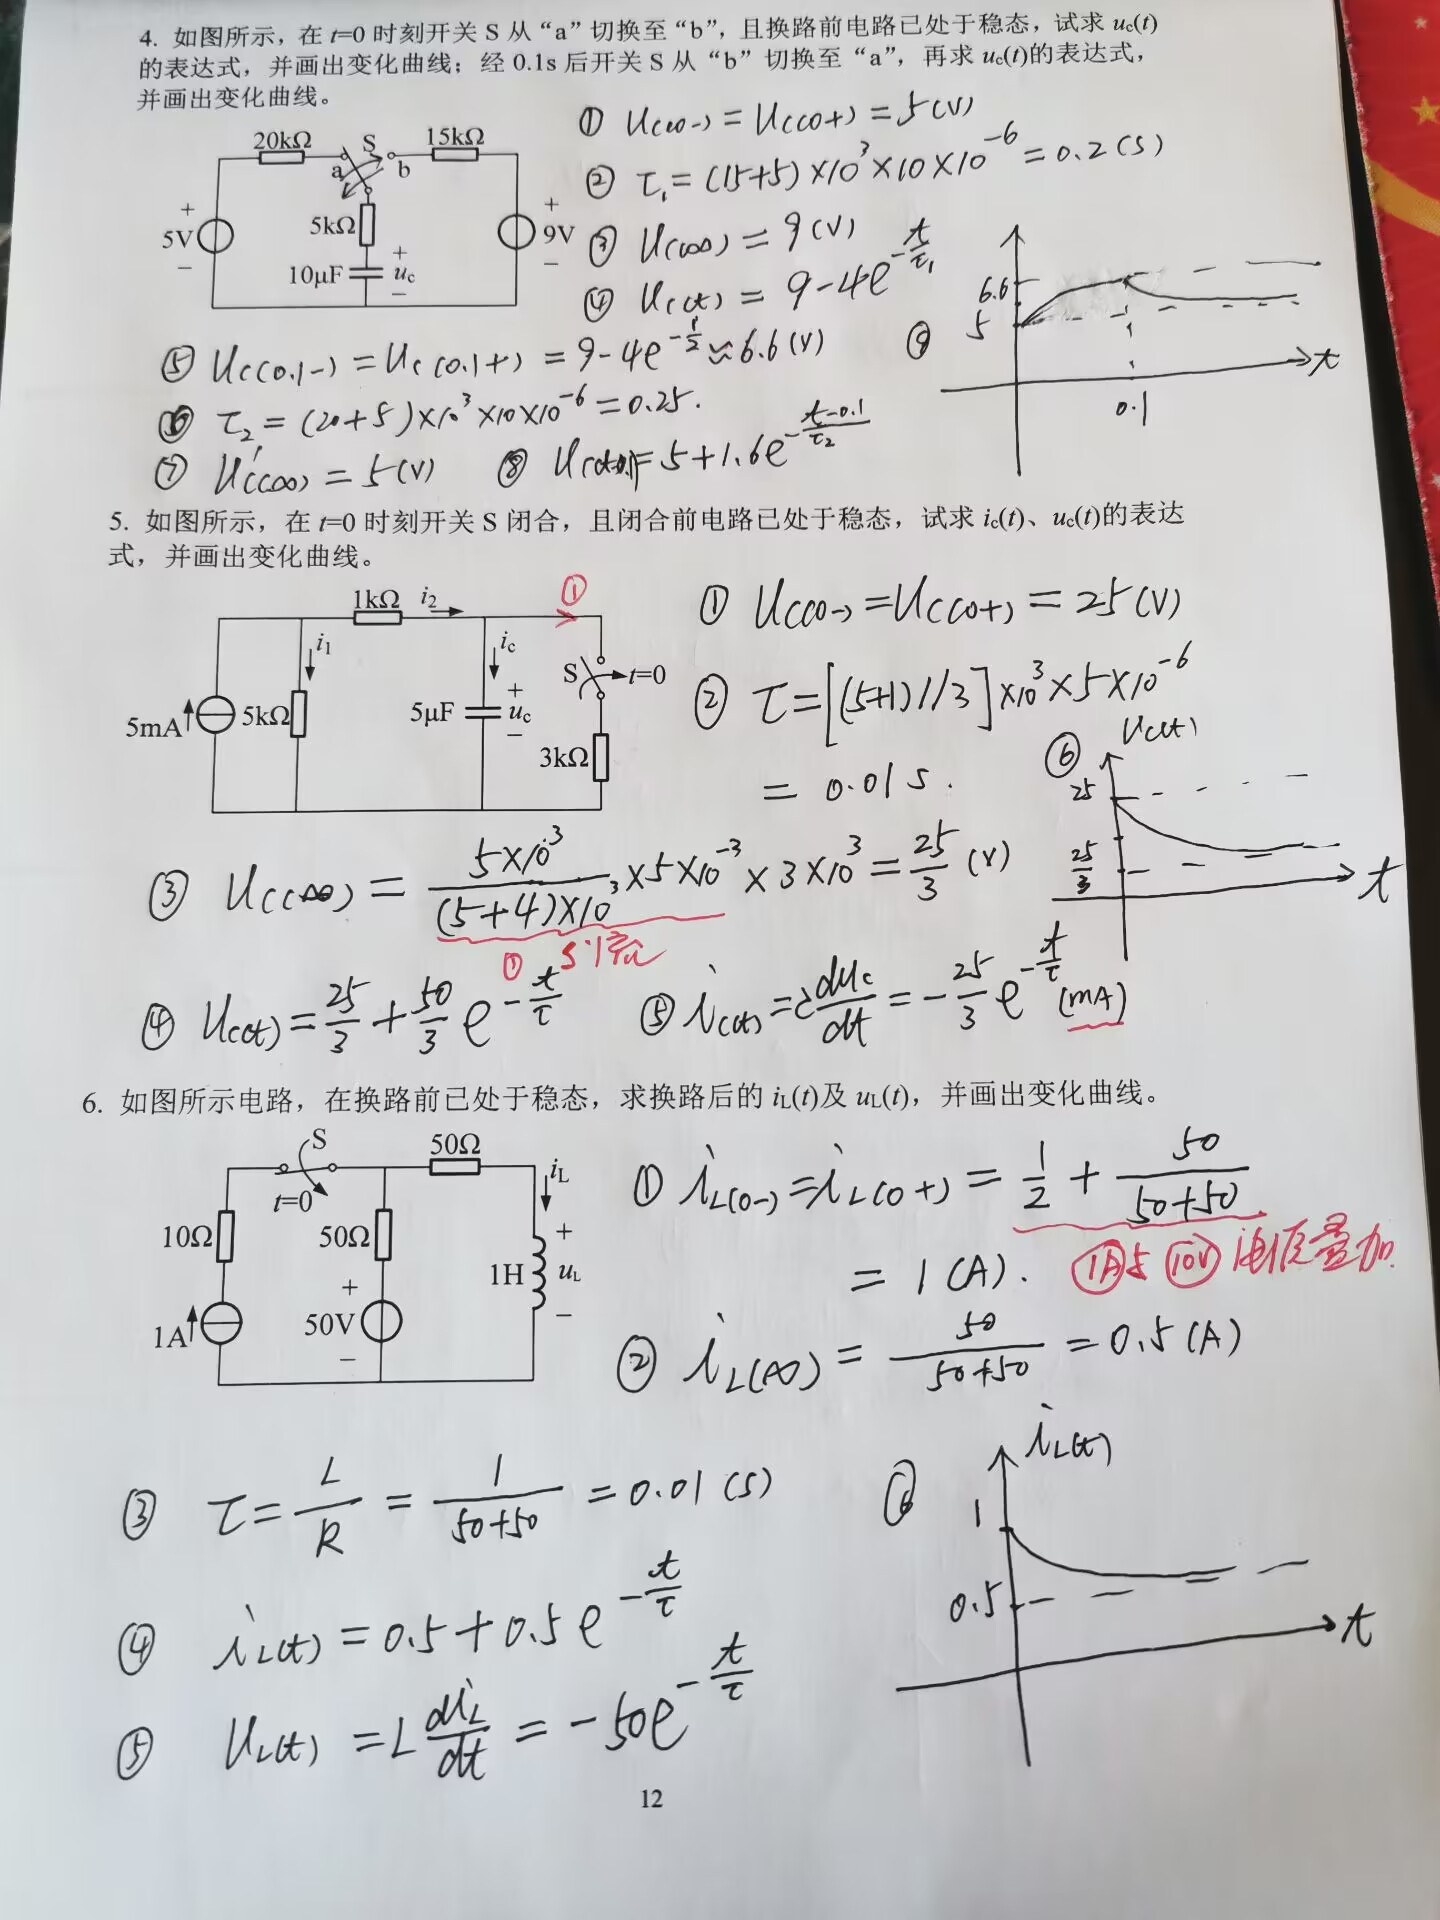 4. 如图所示，在 t=0 时刻开关 S 从“a”切换至“b”，且换路前电路已处于稳态，试求 uc(t)
的表达式，并画出变化曲线；经 0.1s 后开关 S 从“b”切换至“a”，再求 uc(t)的表达式，
并画出变化曲线。
20kΩ S 15kΩ
a b
5kΩ
+ 5V −
+ 9V −
10μF + uc −
① uc(0-) = uc(0+) = 5(V)
② τ₁ = (15+5)×10³×10×10⁻⁶ = 0.2(S)
③ u(∞) = 9(V)
④ uc(t) = 9-4e^(-t/τ₁)
⑤ uc(0.1-) = uc(0.1+) = 9-4e^(-1/2) ≈ 6.6(V)
⑥ τ₂ = (20+5)×10³×10×10⁻⁶ = 0.25.
⑦ u'c(∞) = 5(V)
⑧ = 5+1.6e^(-(t-0.1)/τ₂)
⑨
6.6
5
0.1
t
5. 如图所示，在 t=0 时刻开关 S 闭合，且闭合前电路已处于稳态，试求 ic(t)、uc(t)的表达
式，并画出变化曲线。
1kΩ i2 ①
i1 ic
S t=0
5mA 5kΩ 5μF + uc −
3kΩ
① uc(0-) = uc(0+) = 25(V)
② τ = [(5+1)//3]×10³×5×10⁻⁶
= 0.01 S.
⑥ uc(t)
25
25/3
t
③ uc(∞) = 5×10³/((5+4)×10³)×5×10⁻³×3×10³ = 25/3 (V)
①
④ uc(t) = 25/3 + 50/3 e^(-t/τ)
⑤ ic(t) = C duc/dt = -25/3 e^(-t/τ) (mA)
6. 如图所示电路，在换路前已处于稳态，求换路后的 iL(t)及 uL(t)，并画出变化曲线。
S 50Ω
t=0 iL
10Ω 50Ω
1H + uL −
1A + 50V −
① iL(0-) = iL(0+) = 1/2 + 50/(50+50)
= 1(A).
1A与10V
② iL(∞) = 50/(50+50) = 0.5(A)
③ τ = L/R = 1/(50+50) = 0.01(S)
④ iL(t) = 0.5+0.5e^(-t/τ)
⑤ uL(t) = L diL/dt = -50e^(-t/τ)
⑥ iL(t)
1
0.5
t
12